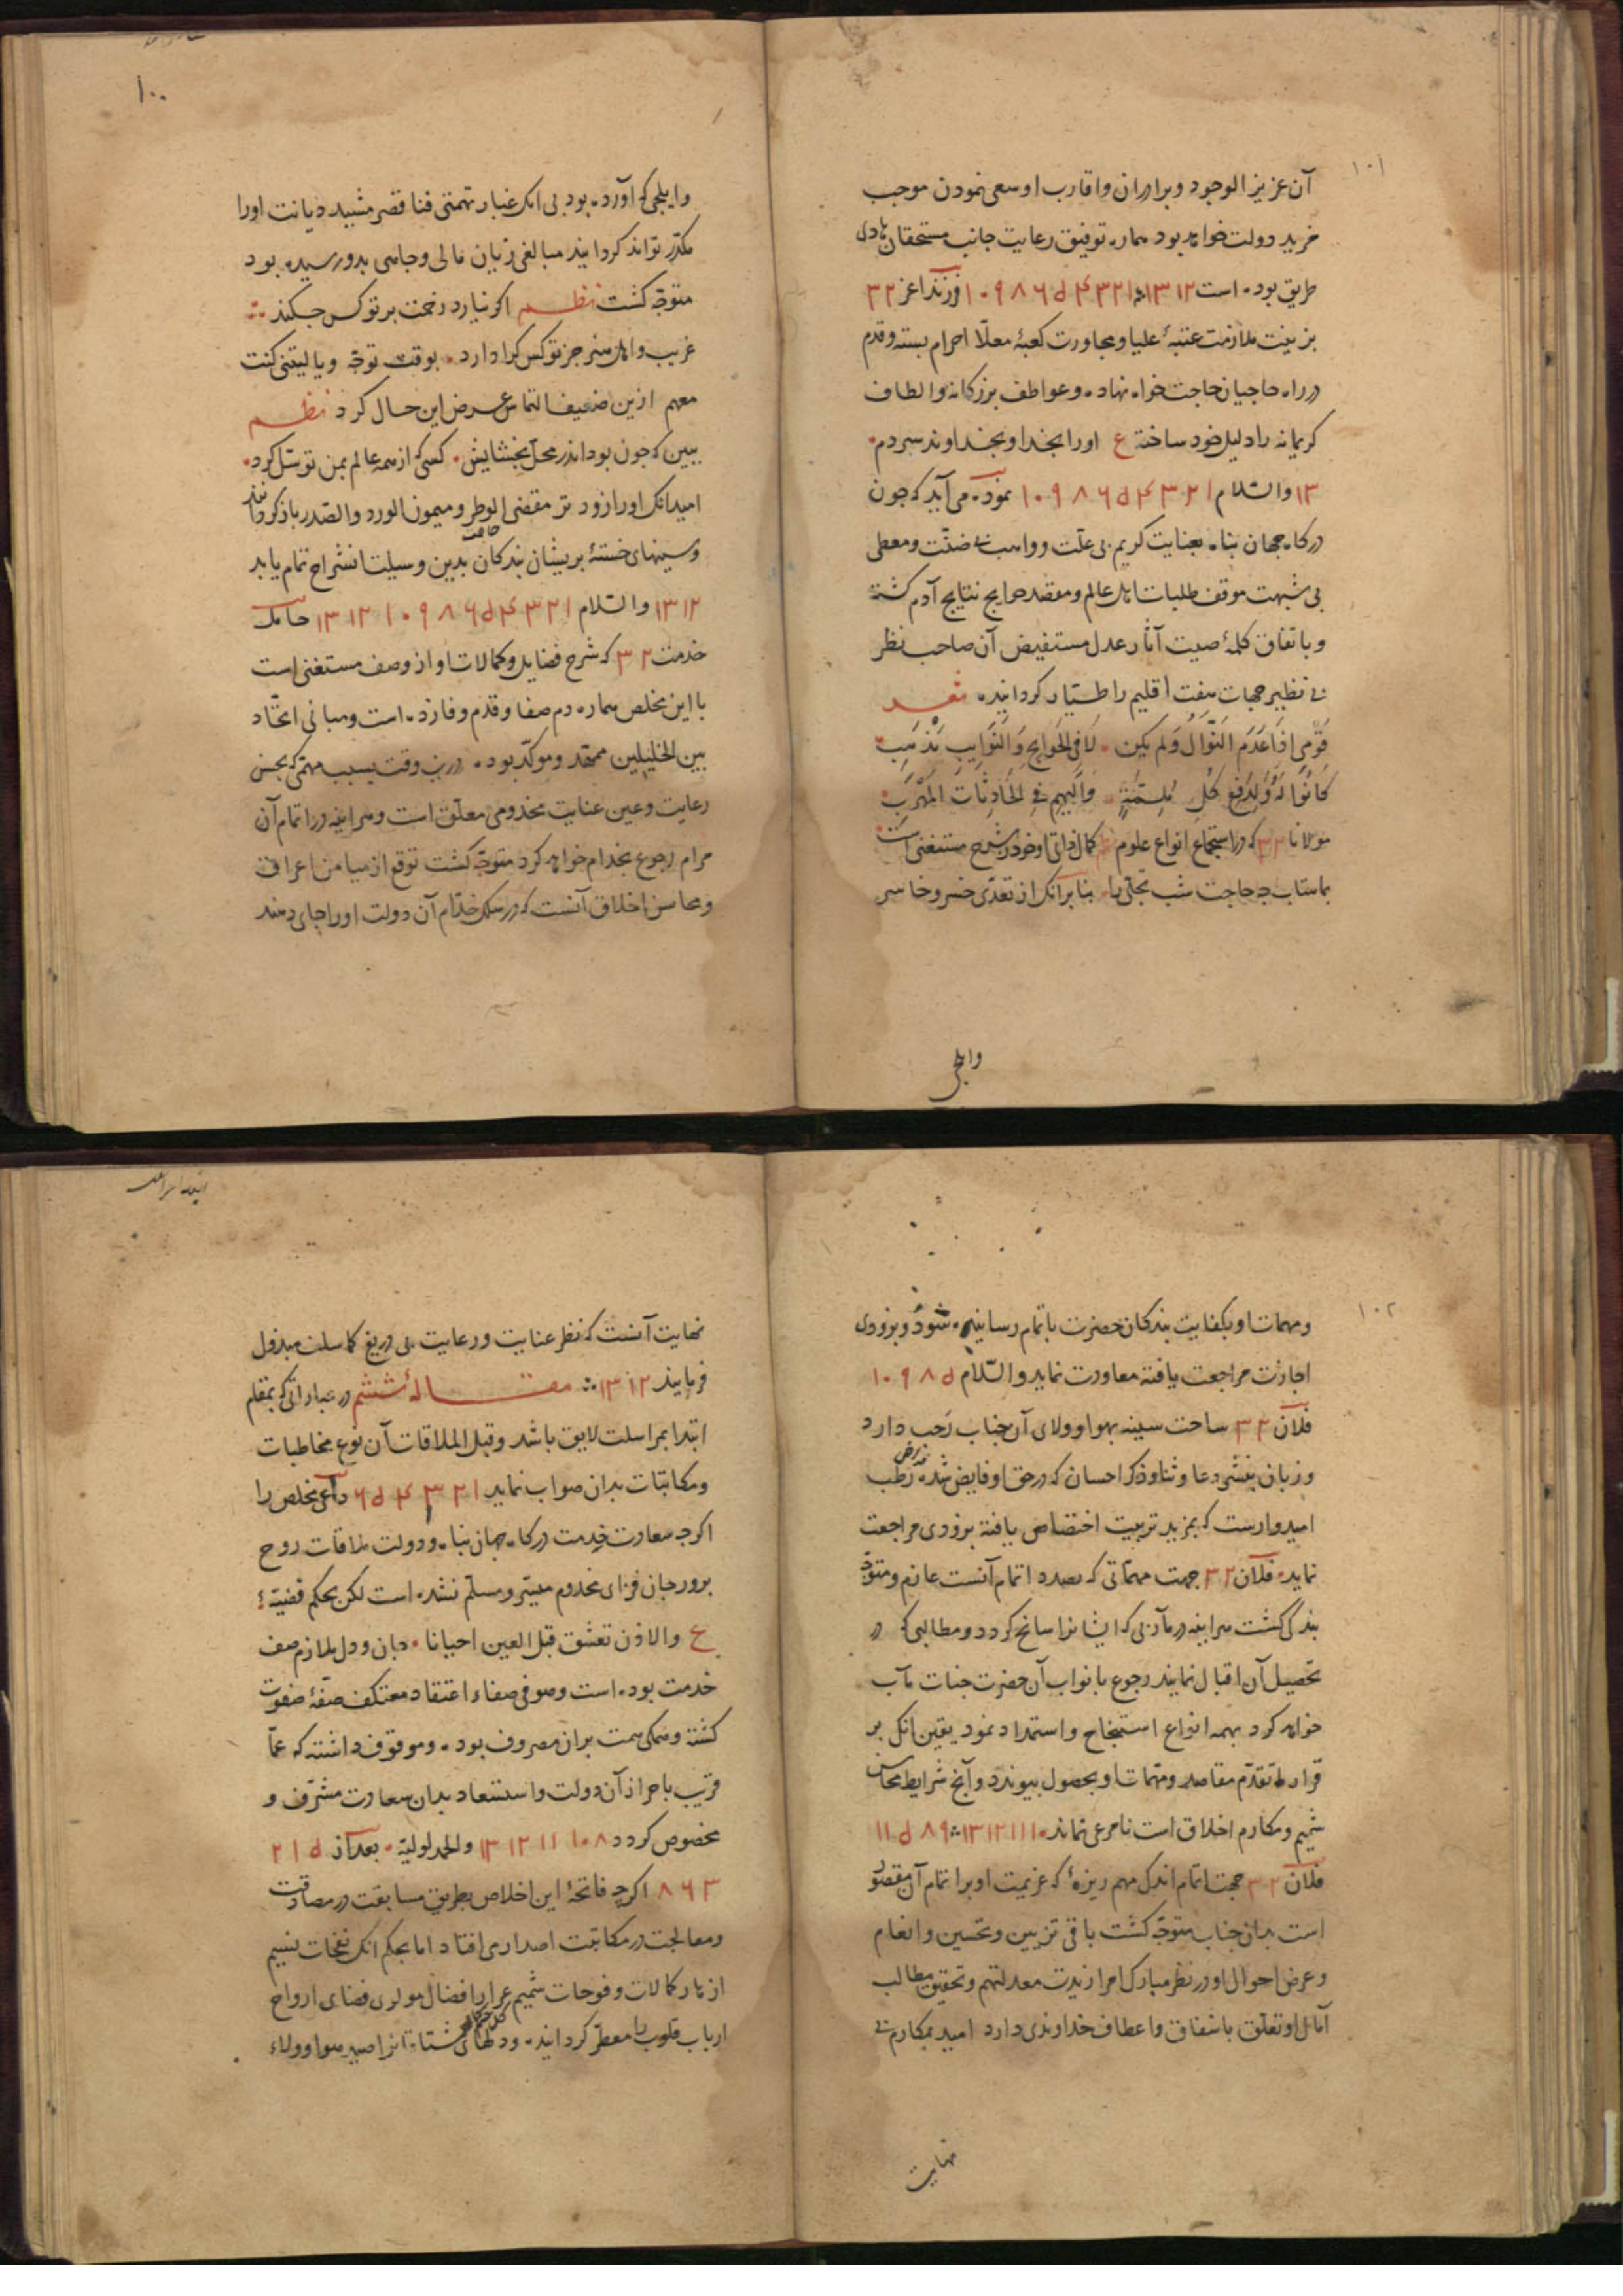 ۱۰۱
آن عزیز الوجود و برادران و اقارب او سعی نمودن موجب
مزید دولت خواهد بود همواره توفیق رعایت جانب مستحقان هادی
طریق بوده است ۱۲ ۱۳ ۱ ۲ ۳ ۴ d ۶ ۸ ۹ ۱۰ فرزند اعز ۲ ۳
بزینت ملازمت عتبهٔ علیا و مجاورت کعبهٔ معلّا احرام بسته و قدم
در راه حاجیان حاجت خواه نهاده و عواطف بزرکانه و الطاف
کریمانه را دلیل خود ساخته ع اورا بخدا و بخداوند سپردم
۱۳ والسّلام ۱ ۲ ۳ ۴ d ۶ ۸ ۹ ۱۰ نموده می آید که چون
درکاه جهان پناه بعنایت کریم بی علّت و واهب بی ضنّت و معطی
بی شبهت موقف طلبات اهل عالم و مقصد حوایج نتایج آدم کشته
و باتفاق کلمهٔ صیت آثار عدل مستفیض آن صاحب نظر
بی نظیر جهات هفت اقلیم را طیّار کردانیده شعر
قومی اذا عدم النّوال ولم یکن لا فی الحوایج والنّوایب مذهب
کانوا له ولدفع کل ملمّة والیهم فی الحادثات المهرب
مولانا ۲ ۳ که در استجماع انواع علوم کمال ذاتی او خود از شرح مستغنی است
بماهتاب چه حاجت شب تجلّی را بنابر آنک از تعدّی خسرو خاسر
وایلچی
۱۰۰
وایلچی که آورده بود بی انک غبار تهمتی فنا قصر مشید دیانت اورا
مکدّر تواند کردانید مبالغی زیان مالی و جاهی بدو رسیده بود
متوجّه کشت نظم اکر نیارد زحمت بر تو کس چکند
غریب و اهل هنر جز تو کس کرا دارد بوقت توجّه و یا لیتنی کنت
معهم ازین ضعیف التماس عرض این حال کرد نظم
ببین که چون بود اندر محل بخشایش کسی که از همه عالم بمن توسّل کرد
امید انک اورا زودتر مقضی الوطر و میمون الورد والصّدر باز کردانند
و سینهای خستهٔ پریشان بندکان بدین وسیلت انشراح تمام یابد
۱۲ ۱۳ والسّلام ۱ ۲ ۳ ۴ d ۶ ۸ ۹ ۱۰ ۱۲ ۱۳ حامل
خدمت ۲ ۳ که شرح فضایل و کمالات او از وصف مستغنی است
با این مخلص همواره دم صفا و قدم وفا زده است و مبانی اتّحاد
بین الخلیلین ممهّد و موکّد بوده درین وقت بسبب مهمّی که بحسن
رعایت و عین عنایت مخدومی معلّق است و هراینه در اتمام آن
مرام رجوع بخدام خواهد کرد متوجّه کشت توقع از میامن اعراق
و محاسن اخلاق آنست که در سلک خدّام آن دولت اورا جای دهند
۱۰۲
و مهمات او بکفایت بندکان حضرت باتمام رسانیده شود و بزودی
اجازت مراجعت یافته معاودت نماید والسّلام d ۸ ۹ ۱۰
فلان ۲ ۳ ساحت سینه بهوا و ولای آن جناب رحب دارد
و زبان بنشر دعا و ثنا و ذکر احسان که در حق او فایض شده رطب
امیدوارست که بمزید تربیت اختصاص یافته بزودی مراجعت
نماید فلان ۲ ۳ جهت مهمّاتی که بصدد اتمام آنست عازم و متوجّه
بندکی کشت هراینه در مآربی که ایشانرا سانح کردد و مطالبی که در
تحصیل آن اقبال نمایند رجوع با نواب آن حضرت جنات مآب
خواهد کرد بهمه انواع استنجاح و استمداد نمود یقین انک بر
قرار ما تقدّم مقاصد و مهمّات او بحصول پیوندد و آنچ شرایط محاسن
شیم و مکارم اخلاق است نامرعی نماند ۱۰ ۱۱ ۱۲ ۱۳ ۸ ۹ d ۱۱
فلان ۲ ۳ جهت اتمام اندک مهم ریزهٔ که عزیمت او بر اتمام آن مقصور
است بدان جناب متوجّه کشت باقی تزیین و تحسین و انعام
و عرض احوال او در نظر مبارک امرا زیدت معدلتهم و تحقیق مطالب
آمال او تعلّق باشفاق و اعطاف خداوندی دارد امید بمکارم بی
نهایت
نهایت آنست که نظر عنایت و رعایت بی دریغ کما سلف مبذول
فرمایند ۱۲ ۱۳ مقالهٔ ششم در عباراتی که بمقام
ابتدا بمراسلت لایق باشد و قبل الملاقات آن نوع مخاطبات
و مکاتبات بدان صواب نماید ۱ ۲ ۳ ۴ d ۶ داعی مخلص را
اکرچه سعادت خدمت درکاه جهان پناه و دولت ملاقات روح
پرور جان فزای مخدوم میسّر و مسلّم نشده است لکن بحکم قضیّهٔ
ع والاذن تعشق قبل العین احیانا جان و دل ملازم صف
خدمت بوده است و صوفی صفاء اعتقاد معتکف صفّهٔ صفوت
کشته و همکی همت بران مصروف بوده و موقوف داشته که عمّا
قریب باحراز آن دولت و استسعاد بدان سعادت مشرّف و
مخصوص کردد ۸ ۱۰ ۱۱ ۱۲ ۱۳ والحمد لولیه بعد از d ۱ ۲
۳ ۶ ۸ اکرچه فاتحهٔ این اخلاص بطریق مسابقت در مصادقت
و معالجت در مکاتبت اصدار می افتاد اما بحکم انک نفحات نسیم
ازهار کمالات و فوحات شمیم عرار افضال مولوی فضای ارواح
ارباب قلوب را معطّر کردانیده و دلهای مشتاقانرا اسیر هوا و ولاء